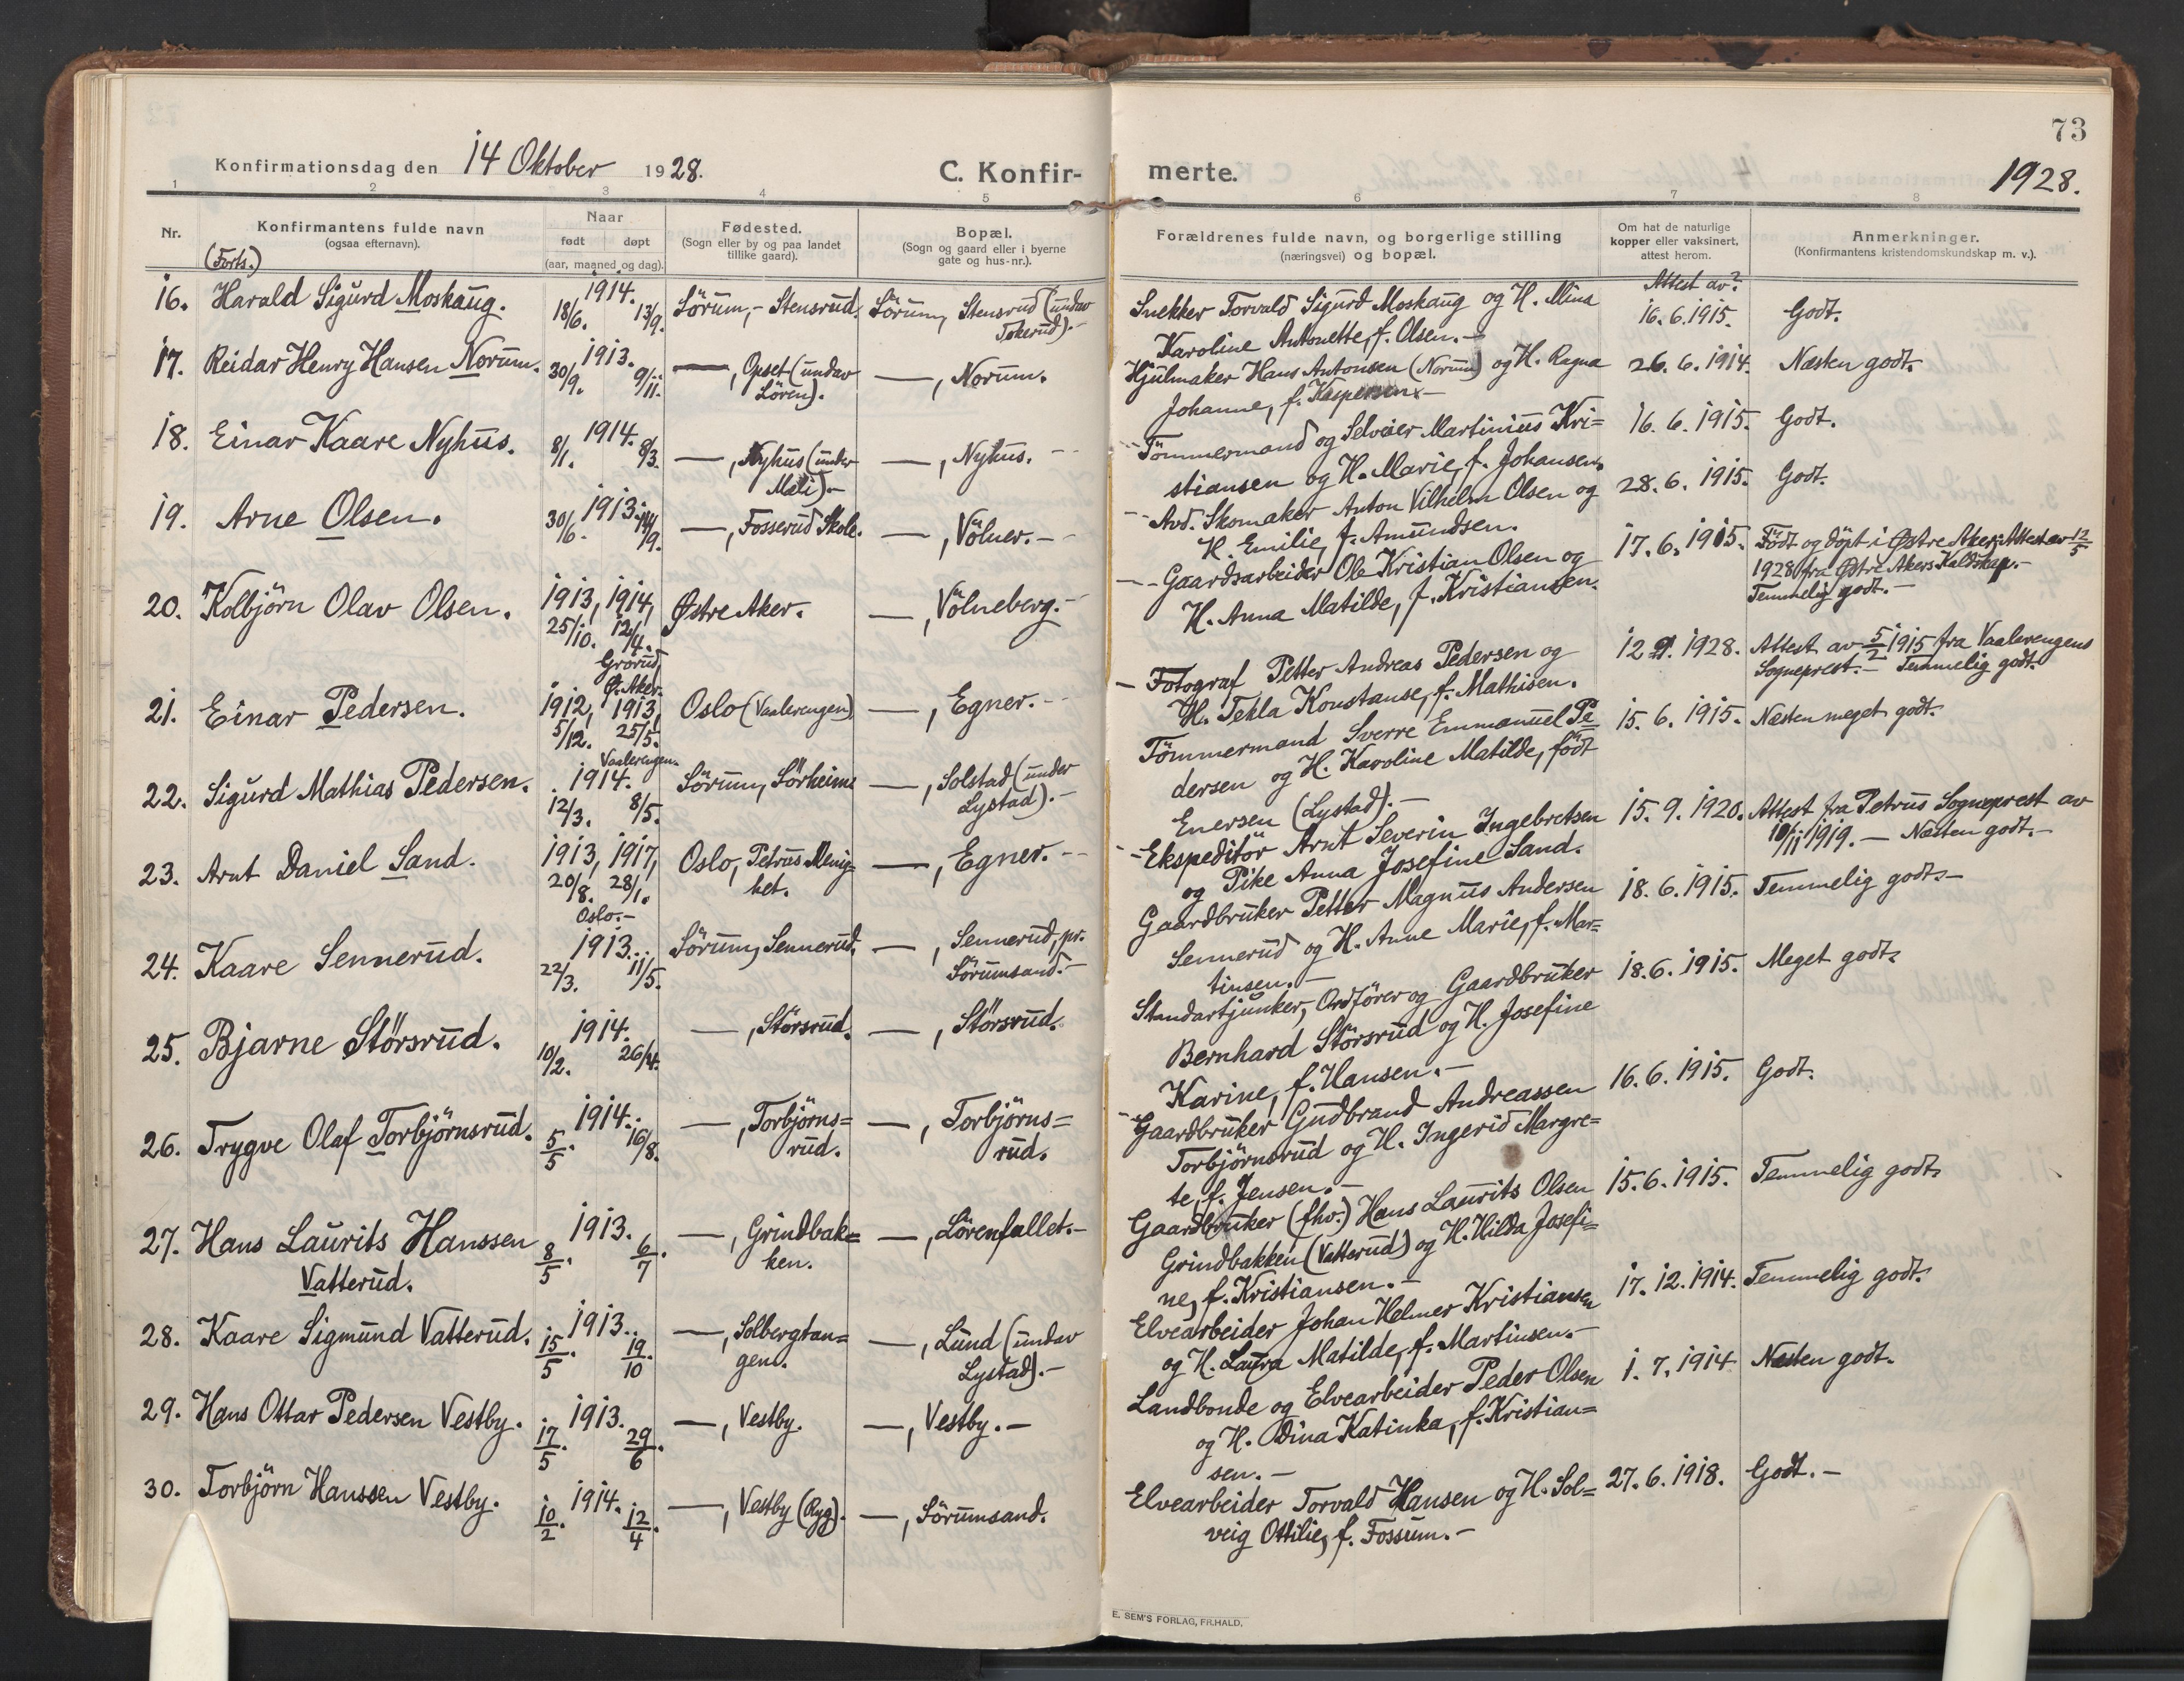 73
Konfirmationsdag den 14 Oktober 1928.
C. Konfir-
merte.
1928.
1 2 3 4 5 6 7 8
Nr.
Konfirmantens fulde navn
(ogsaa efternavn).
(Forts.)
Naar
født døpt
(aar, maaned og dag).
Fødested.
(Sogn eller by og paa landet
tillike gaard).
Bopæl.
(Sogn og gaard eller i byerne
gate og hus-nr.).
Forældrenes fulde navn, og borgerlige stilling
(næringsvei) og bopæl.
Om hat de naturlige
kopper eller vaksinert,
attest herom.
Anmerkninger.
(Konfirmantens kristendomskundskap m. v.).
16. Harald Sigurd Moskaug. 1914. 18/6. 13/9. Sörum, - Stensrud. Sörum, Stensrud (undav
Tokerud).-
Snekker Torvald Sigurd Moskaug og H. Mina
Karoline Antonette, f. Olsen.-
Attest av?
16.6.1915. Godt.
17. Reidar Henry Hansen Norum. 1913. 30/9. 9/11. —, Opset (undav
Lören).
—, Norum.
Hjulmaker Hans Antonsen (Norum) og H. Ragna
Johanne, f. Kaspersen.-
26.6.1914. Næsten godt.
18. Einar Kaare Nyhus. 1914. 8/1. 8/3. —, Nyhus (under
Mæli).-
—, Nyhus.
Tömmermand og Selveier Martinius Kri=
stiansen og H. Marie, f. Johansen.
16.6.1915. Godt.
19. Arne Olsen. 1913. 30/6. 14/9. —, Fosserud Skole. —, Völner.-
Avd. Skomaker Anton Vilhelm Olsen og
H. Emilie, f. Amundsen.
28.6.1915. Godt.
20. Kolbjörn Olav Olsen. 1913, 1914, 25/10. 12/4.
Grorud,
Ø. Aker.
Østre Aker. —, Völneberg.-
Gaardsarbeider Ole Kristian Olsen og
H. Anna Matilde, f. Kristiansen.
17.6.1915. Födt og döpt i Østre Aker, Attest av 12/5
1928 fra Østre Akers Kaldskap.-
Temmelig godt.-
21. Einar Pedersen. 1912, 1913, 5/12. 25/5.
Vaalerengen.
Oslo (Vaalerengen) —, Egner.-
Fotograf Petter Andreas Pedersen og
H. Tekla Konstanse, f. Mathisen.
12.9.1928. Attest av 5/2 1915 fra Vaalerengens
Sogneprest.- Temmelig godt.
22. Sigurd Mathias Pedersen. 1914. 12/3. 8/5. Sörum, Sörheim —, Solstad (under
Lystad).-
Tömmermand Sverre Emmanuel Pe
dersen og H. Karoline Matilde, födt
Enersen (Lystad).-
15.6.1915. Næsten meget godt.
23. Arnt Daniel Sand. 1913, 1917, 20/8. 28/1.
Oslo.-
Oslo, Petrus Menig-
het.
—, Egner.-
Ekspeditör Arnt Severin Ingebretsen
og Pike Anna Josefine Sand.
15.9.1920. Attest fra Petrus Sogneprest av
10/11 1919.- Næsten godt.-
24. Kaare Sennerud. 1913. 22/3. 11/5. Sörum, Sennerud. —, Sennerud, pr.
Sörumsand.-
Gaardbruker Petter Magnus Andersen
Sennerud og H. Anne Marie, f. Mar=
tinsen.-
18.6.1915. Temmelig godt.-
25. Bjarne Störsrud. 1914. 10/2. 26/4. —, Störsrud. —, Störsrud.
Standartjunker, Ordförer og Gaardbruker
Bernhard Störsrud og H. Josefine
Karine, f. Hansen.-
18.6.1915. Meget godt.
26. Trygve Olaf Torbjörnsrud. 1914. 5/5. 16/8. —, Torbjörns=
rud.
—, Torbjörns=
rud.
Gaardbruker Gudbrand Andreassen
Torbjörnsrud og H. Ingerid Margre=
te, f. Jensen.-
16.6.1915. Godt.
27. Hans Laurits Hanssen
Vatterud.
1913. 8/5. 6/7. —, Grindbak=
ken.
—, Lörenfallet.-
Gaardbruker (fhv.) Hans Laurits Olsen
Grindbakken (Vatterud) og H. Hilda Josefi=
ne, f. Kristiansen.-
15.6.1915. Temmelig godt.
28. Kaare Sigmund Vatterud. 1913. 15/5. 19/10. —, Solbergtan=
gen.
—, Lund (undav
Lystad).-
Elvearbeider Johan Helmer Kristiansen
og H. Laura Matilde, f. Martinsen.-
17.12.1914. Temmelig godt.
29. Hans Ottar Pedersen Vestby. 1913. 17/5. 29/6. —, Vestby. —, Vestby.-
Landbonde og Elvearbeider Peder Olsen
og H. Dina Katinka, f. Kristian=
sen.-
1.7.1914. Næsten godt.
30. Torbjörn Hanssen Vestby. 1914. 10/2. 12/4. —, Vestby (Ryg). —, Sörumsand.
Elvearbeider Torvald Hansen og H. Sol=
veig Ottilie, f. Fossum.-
27.6.1918. Godt.-
E. SEM'S FORLAG, FR.HALD.